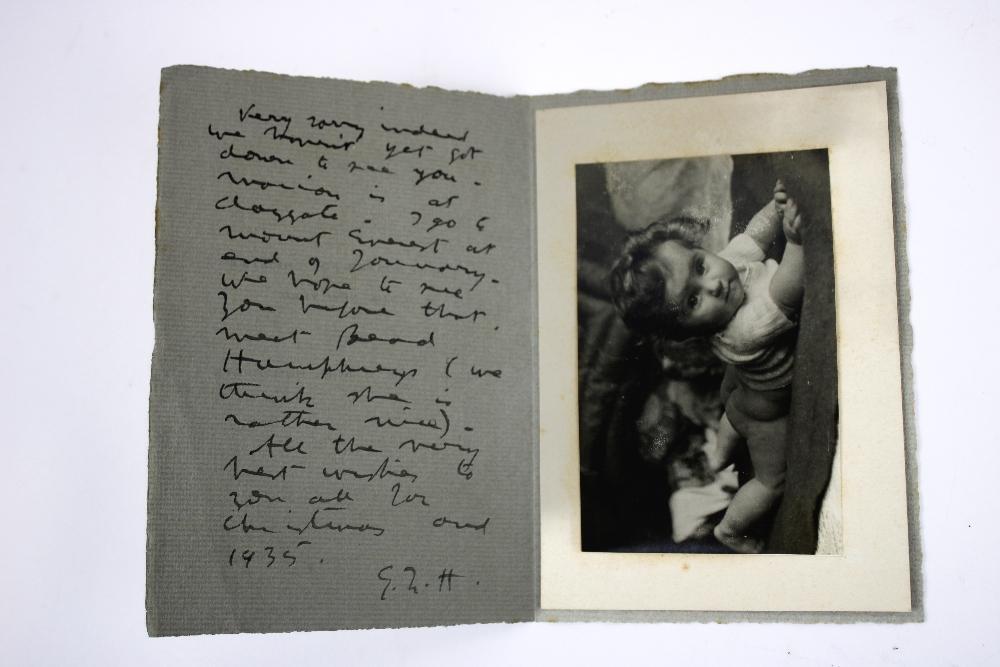 Very sorry indeed
we haven't yet got
down to see you.
Marion is at
Claygate. I go to
Mount Everest at
end of January.
We hope to see
you before that.
meet
Humphreys (we
think she is
rather nice).
All the very
best wishes to
you all for
Christmas and
1935.
G.N.H.